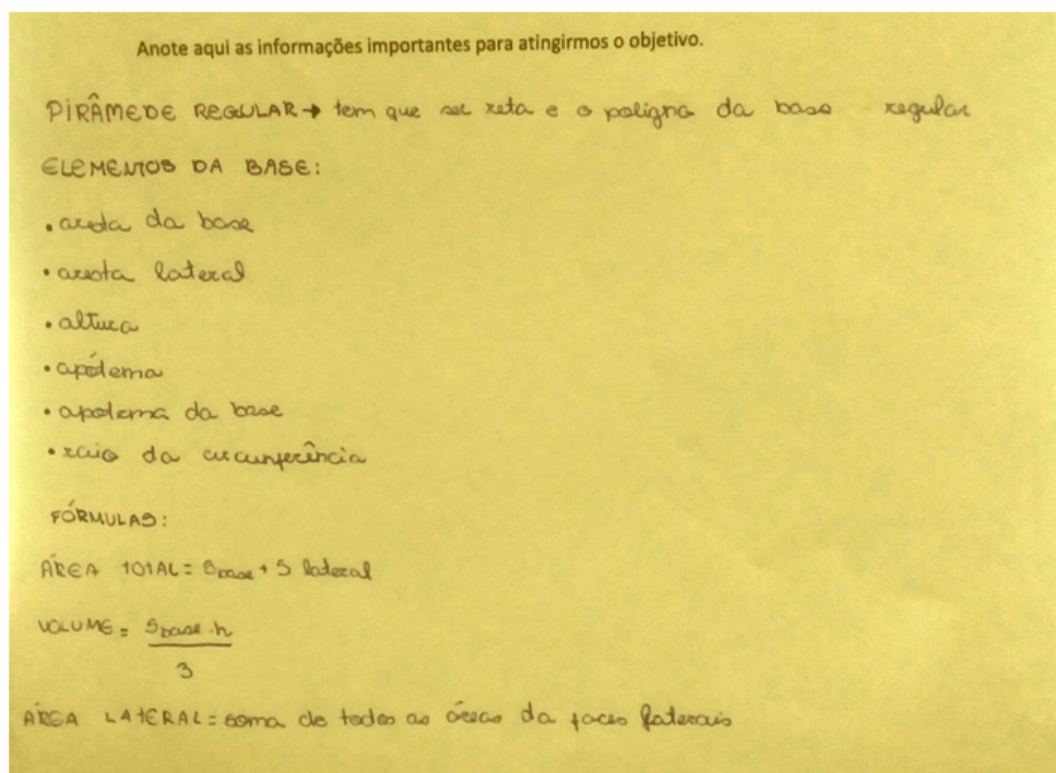 Anote aqui as informações importantes para atingirmos o objetivo.
PIRÂMEDE REGULAR → tem que ser reta e o poligno da base regular
ELEMENTOS DA BASE:
• aresta da base
• aresta lateral
• altura
• apótema
• apotema da base
• raio da circunferência
FÓRMULAS:
ÁREA TOTAL = Sbase + S lateral
VOLUME = Sbase . h
3
ÁREA LATERAL = soma de todas as áreas da faces laterais